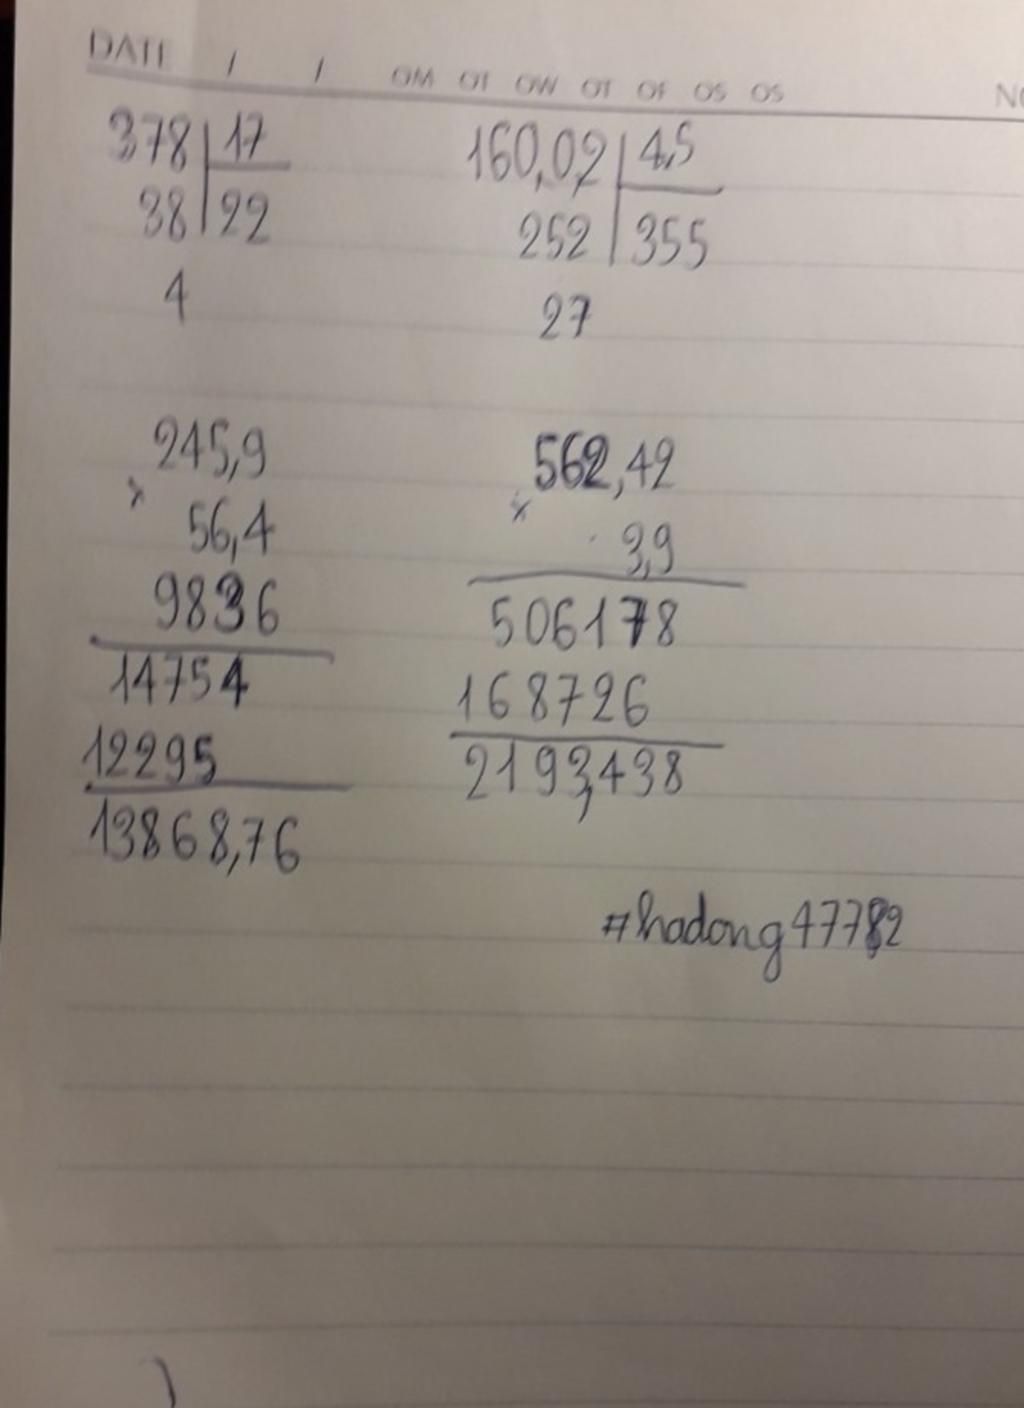 DATE / / OM OT OW OT OF OS OS NO
378 17
38 22
4
160,02 4,5
252 355
27
245,9
x
56,4
9836
14754
12295
13868,76
562,42
x
3,9
506178
168726
2193,438
#hadong47782